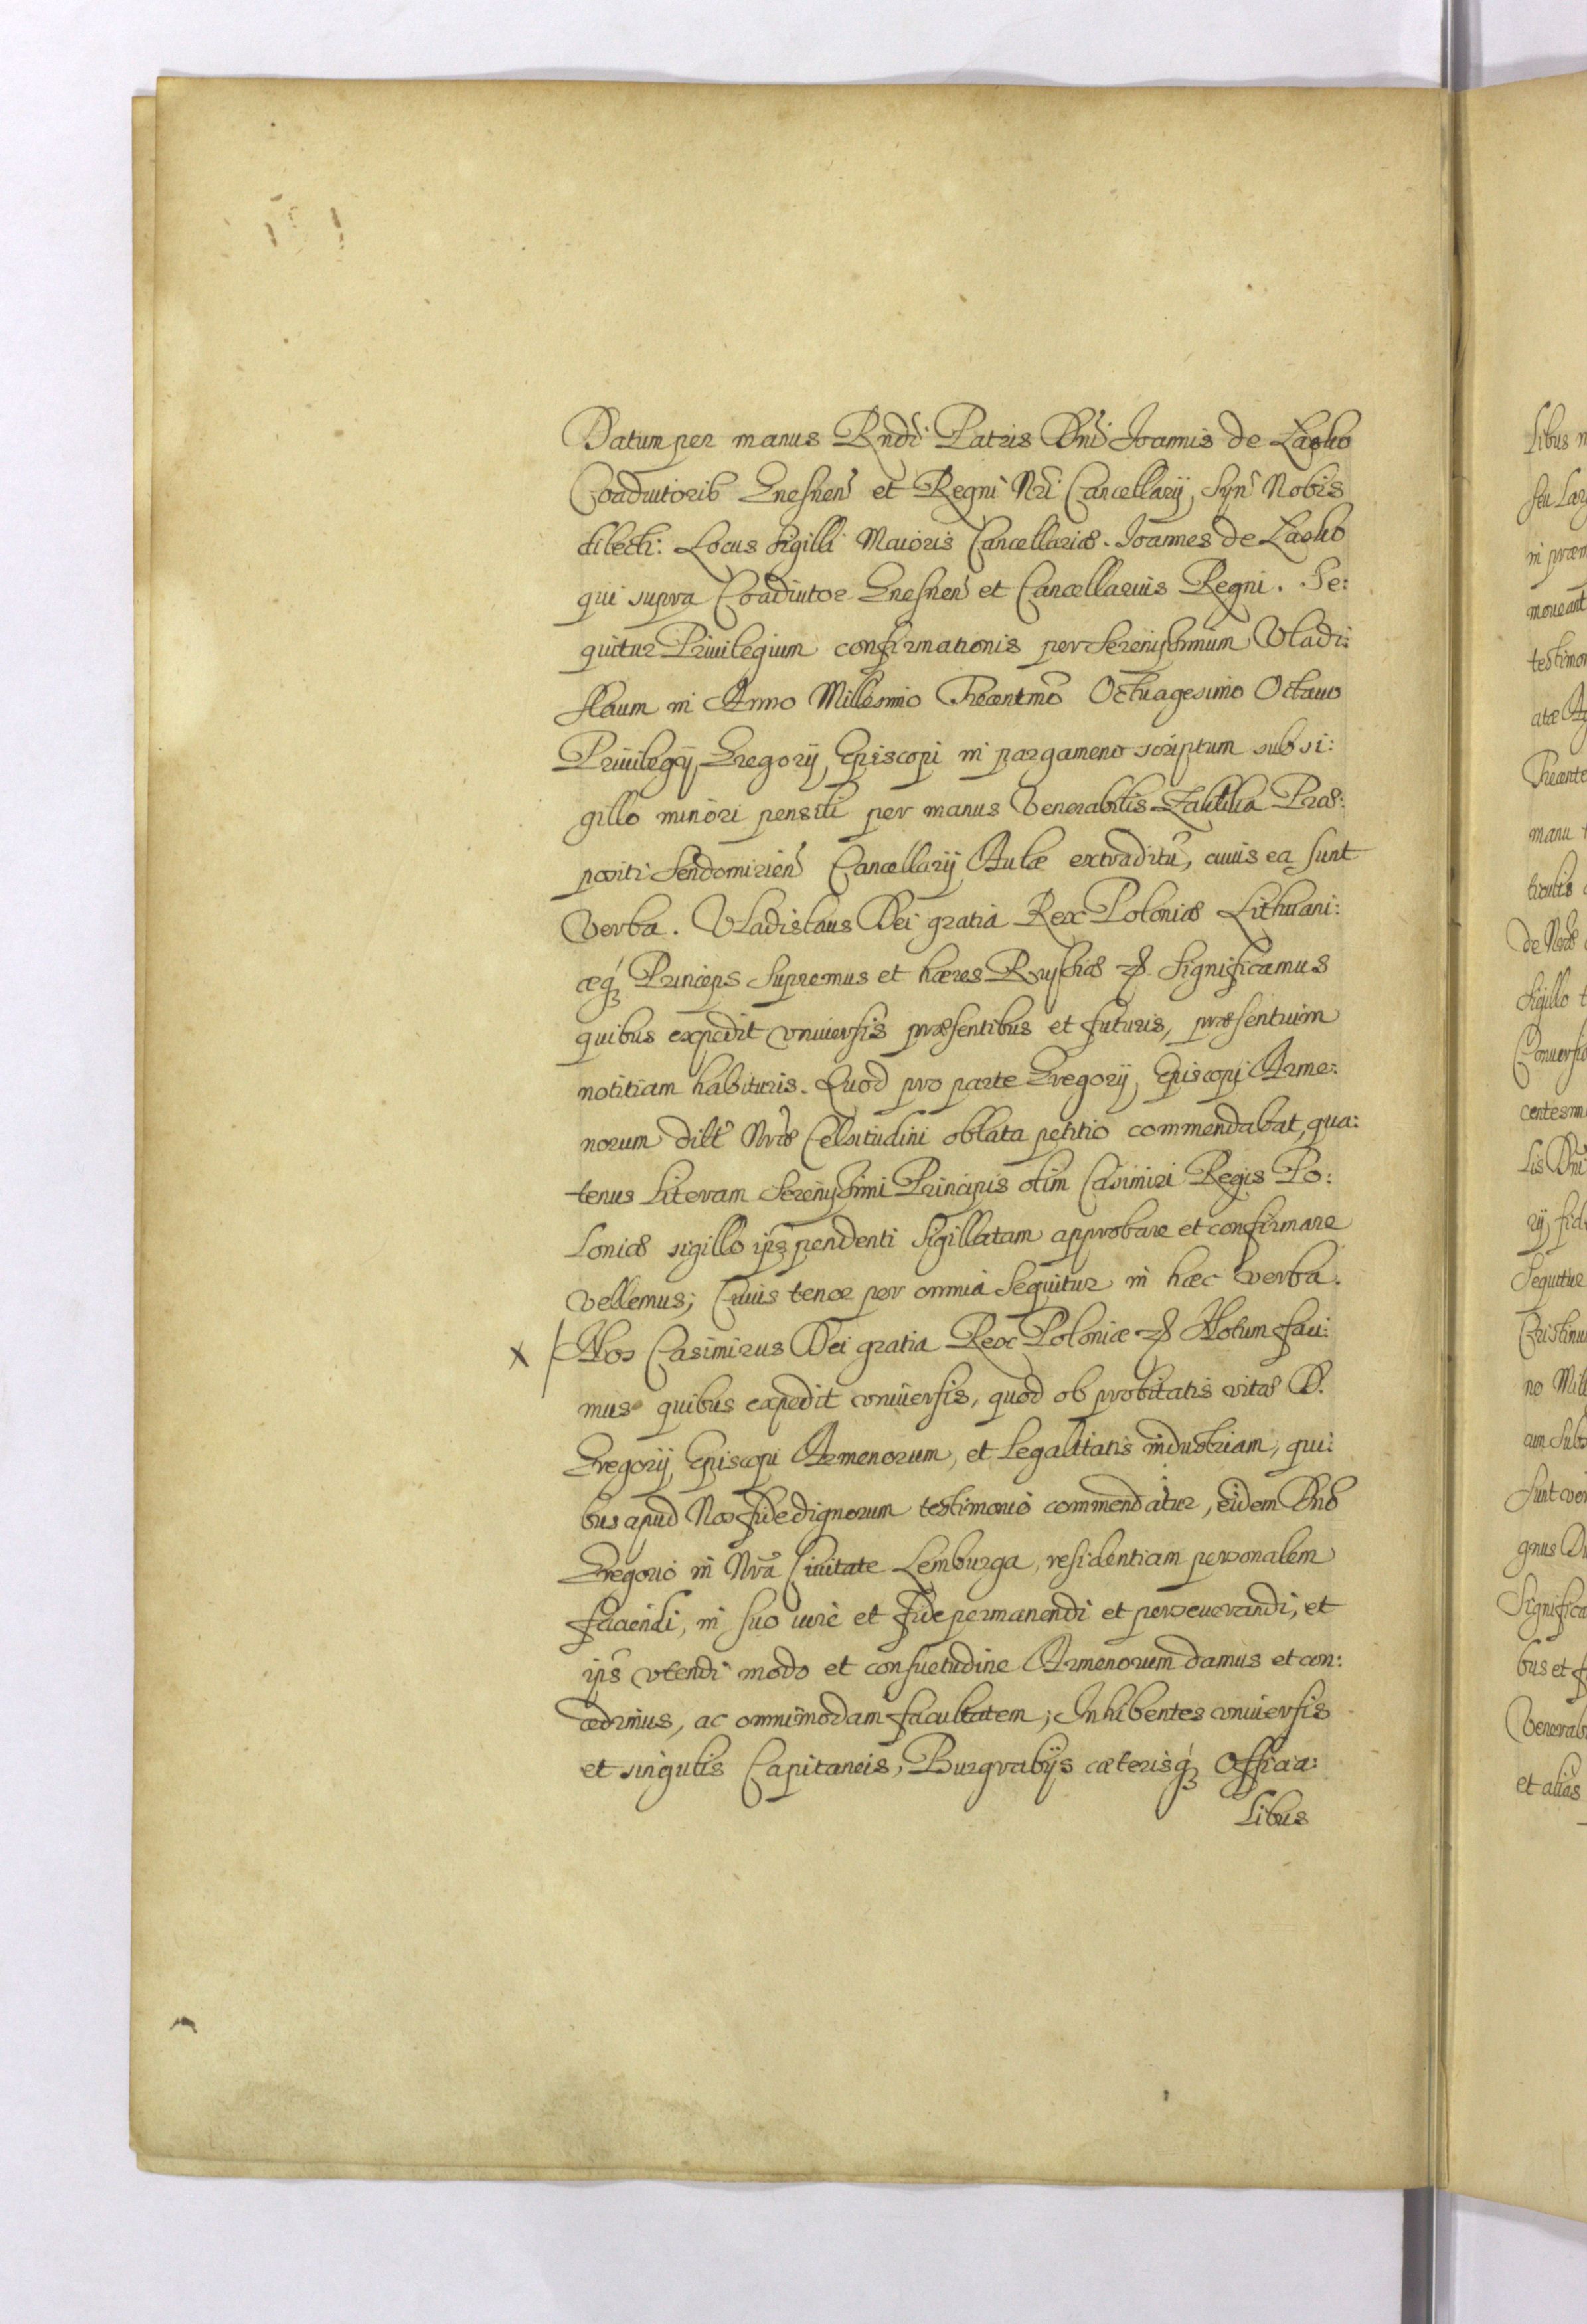 Datum per manus Rndi Patris Dni Joannis de Lasko
Coadiutoris Gnesnen et Regni Nri Cancellarij, Syn Nobis
dilecti: Locus Sigilli Maioris Cancellariæ. Joannes de Lasko
qui supra Coadiutor Gnesnen et Cancellarius Regni. Se:
quitur Priuilegium confirmationis per Serenissimum Vladi:
slaum in Anno Millesimo Trecentmo Octuagesimo Octauo
Priuilegij Gregorij Episcopi in pargameno scriptum sub si:
gillo minori pensili per manus Venerabilis Zaklika Præ:
positi Sendomirien Cancellarij Aulæ extraditu, cuius ea sunt
verba. Vladislaus Dei gratia Rex Poloniæ Lithuani:
æq Princeps Supremus et hæres Russiæ &. Significamus
quibus expedit vniuersis præsentibus et futuris, præsentium
notitiam habituris. Quod pro parte Gregorij Episcopi Arme:
norum dilt Nræ Celsitudini oblata petitio commendabat, qua:
tenus Literam Serenissimi Principis olim Casimiri Regis Po:
loniæ sigillo ips pendenti Sigillatam approbare et confirmare
vellemus; Cuius tenor per omnia sequitur in hæc verba.
x Nos Casimirus Dei gratia Rex Poloniæ & Notum faci:
mus quibus expedit vniuersis, quod ob probitatis vitæ D.
Gregorij Episcopi Armenorum, et legalitatis industriam, qui:
bus apud Nos fide dignorum testimonio commendatur, eidem Dno
Gregorio in Nra Ciuitate Lemburga, residentiam personalem
faciendi, in suo iure et fide permanendi et perseuerandi, et
ips vtendi modo et consuetudine Armenorum damus et con:
cedimus, ac omnimodam facultatem; Inhibentes vniuersis
et singulis Capitaneis, Burgrabijs cæterisq Officia:
libus